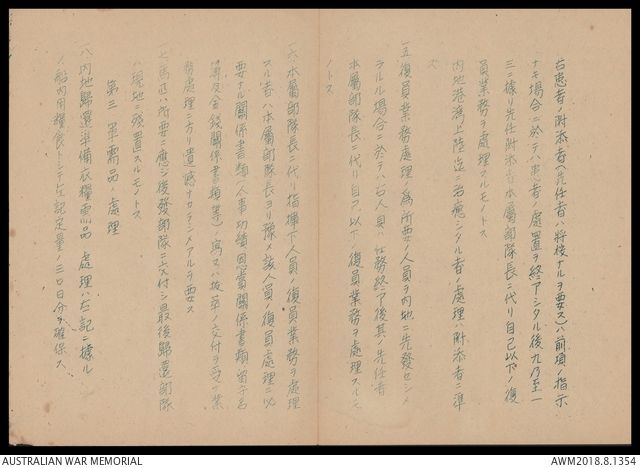 右患者ノ附添者(先任者ハ将校ナルヲ要ス)ハ前項ノ指示
ナキ場合ニ於テハ患者ノ處置ヲ終アシタル後九乃至一
三ニ據リ先任附添者本屬部隊長ニ代リ自己以下ノ復
員業務ヲ處理スルモノトス
内地港湾上陸迄ニ治癒シタル者ノ處理ハ附添者ニ準
ス
一五復員業務處理ノ為所要ノ人員ヲ内地ニ先發セシメ
ラルル場合ニ於テハ右人員ハ仕務終了後其ノ先任者
本屬部隊長ニ代リ自己以下ノ復員業務ヲ處理スルモ
ノトス
一六本屬部隊長ニ代リ指揮下人員ノ復員業務ヲ處理
スル者ハ本屬部隊長ヨリ豫メ該人員ノ復員處理ニ必
要ナル關係書類(人事功績恩賞關係書類留守名
簿及金錢關係書類等)寫又ハ抜萃ノ交付ヲ受ケ業
務處理ニ方リ遺憾ナカラシメアルヲ要ス
一七馬匹ハ所要ニ應シ後發部隊ニ交付シ最後歸還部隊
ハ現地ニ殘置スルモノトス
第三 軍需品ノ處理
一八内地歸還準備衣糧需品ノ處理ハ左記ニ據ル
ノ船内用糧食トシテ左記定量ノ三〇日分ヲ確保ス
AUSTRALIAN WAR MEMORIAL
AWM2018.8.1354